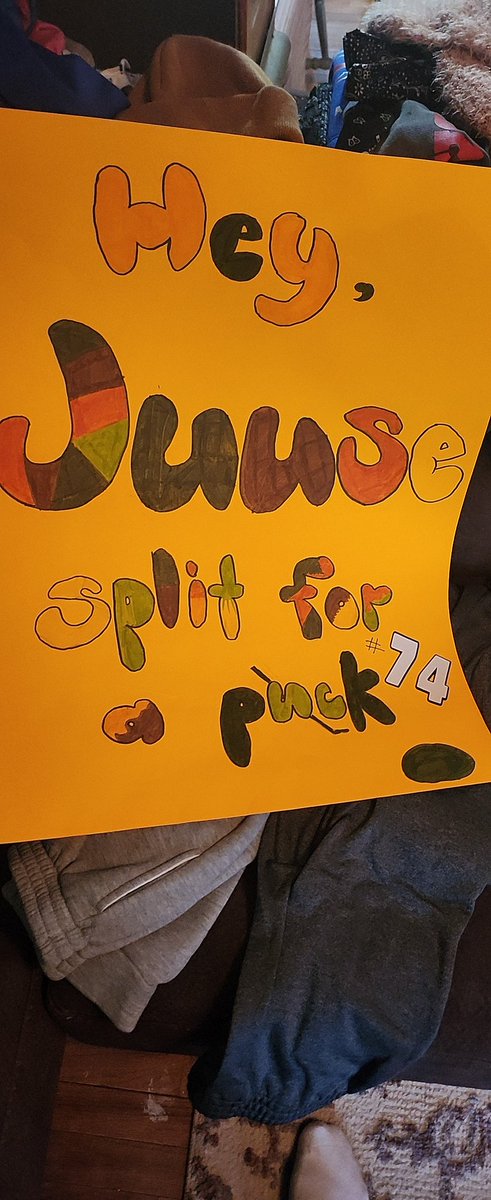 Hey,
Juuse
split for
a puck #74